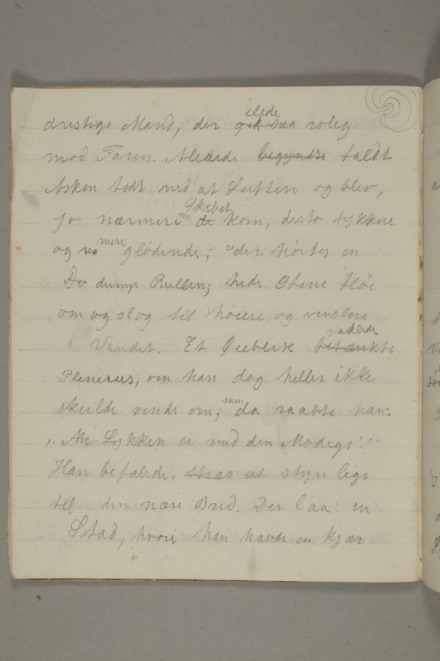 dristige Mand, der ilede gik saa rolig
mod Faren. Allerede begyndte faldt
Asken tæt ned af Luften og blev,
jo nærmere Skibet de kom, desto tykkere
og mere glødende; der hørtes en
dump Rullen; hede Stene fløi
om og slog til høire og venstre
i Vandet. Et Øieblik vaklede betænkte
Plenerius, om han dog heller ikke
skulde vende om; men da raabte han:
„Nei Lykken er med den Modige!"
Han befalede, strax at styre lige
til den nære Bred. Der laa en
Stad, hvori han havde en kjær